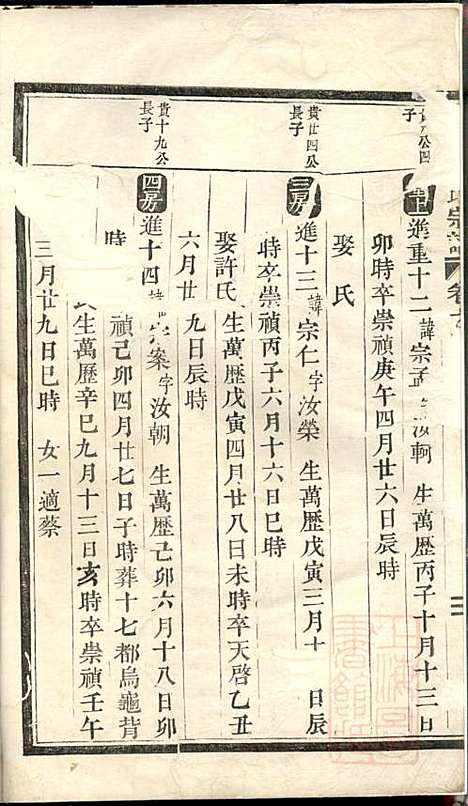 氏宗譜 卷
公四
子
進重十二諱宗孟 汝軻 生萬歷丙子十月十三日
卯時卒崇禎庚午四月廿六日辰時
娶 氏
貴廿四公
長子
三房進十三諱宗仁字汝榮 生萬歷戊寅三月十 日辰
時卒崇禎丙子六月十六日巳時
娶許氏生萬歷戊寅四月廿八日未時卒天啓乙丑
六月廿九日辰時
貴十九公
長子
四房進十四諱宗案字汝朝 生萬歷己卯六月十八日卯
時 禎己卯四月廿七日子時葬十七都烏龜背
氏生萬歷辛巳九月十三日亥時卒崇禎壬午
三月廿九日巳時 女一適蔡